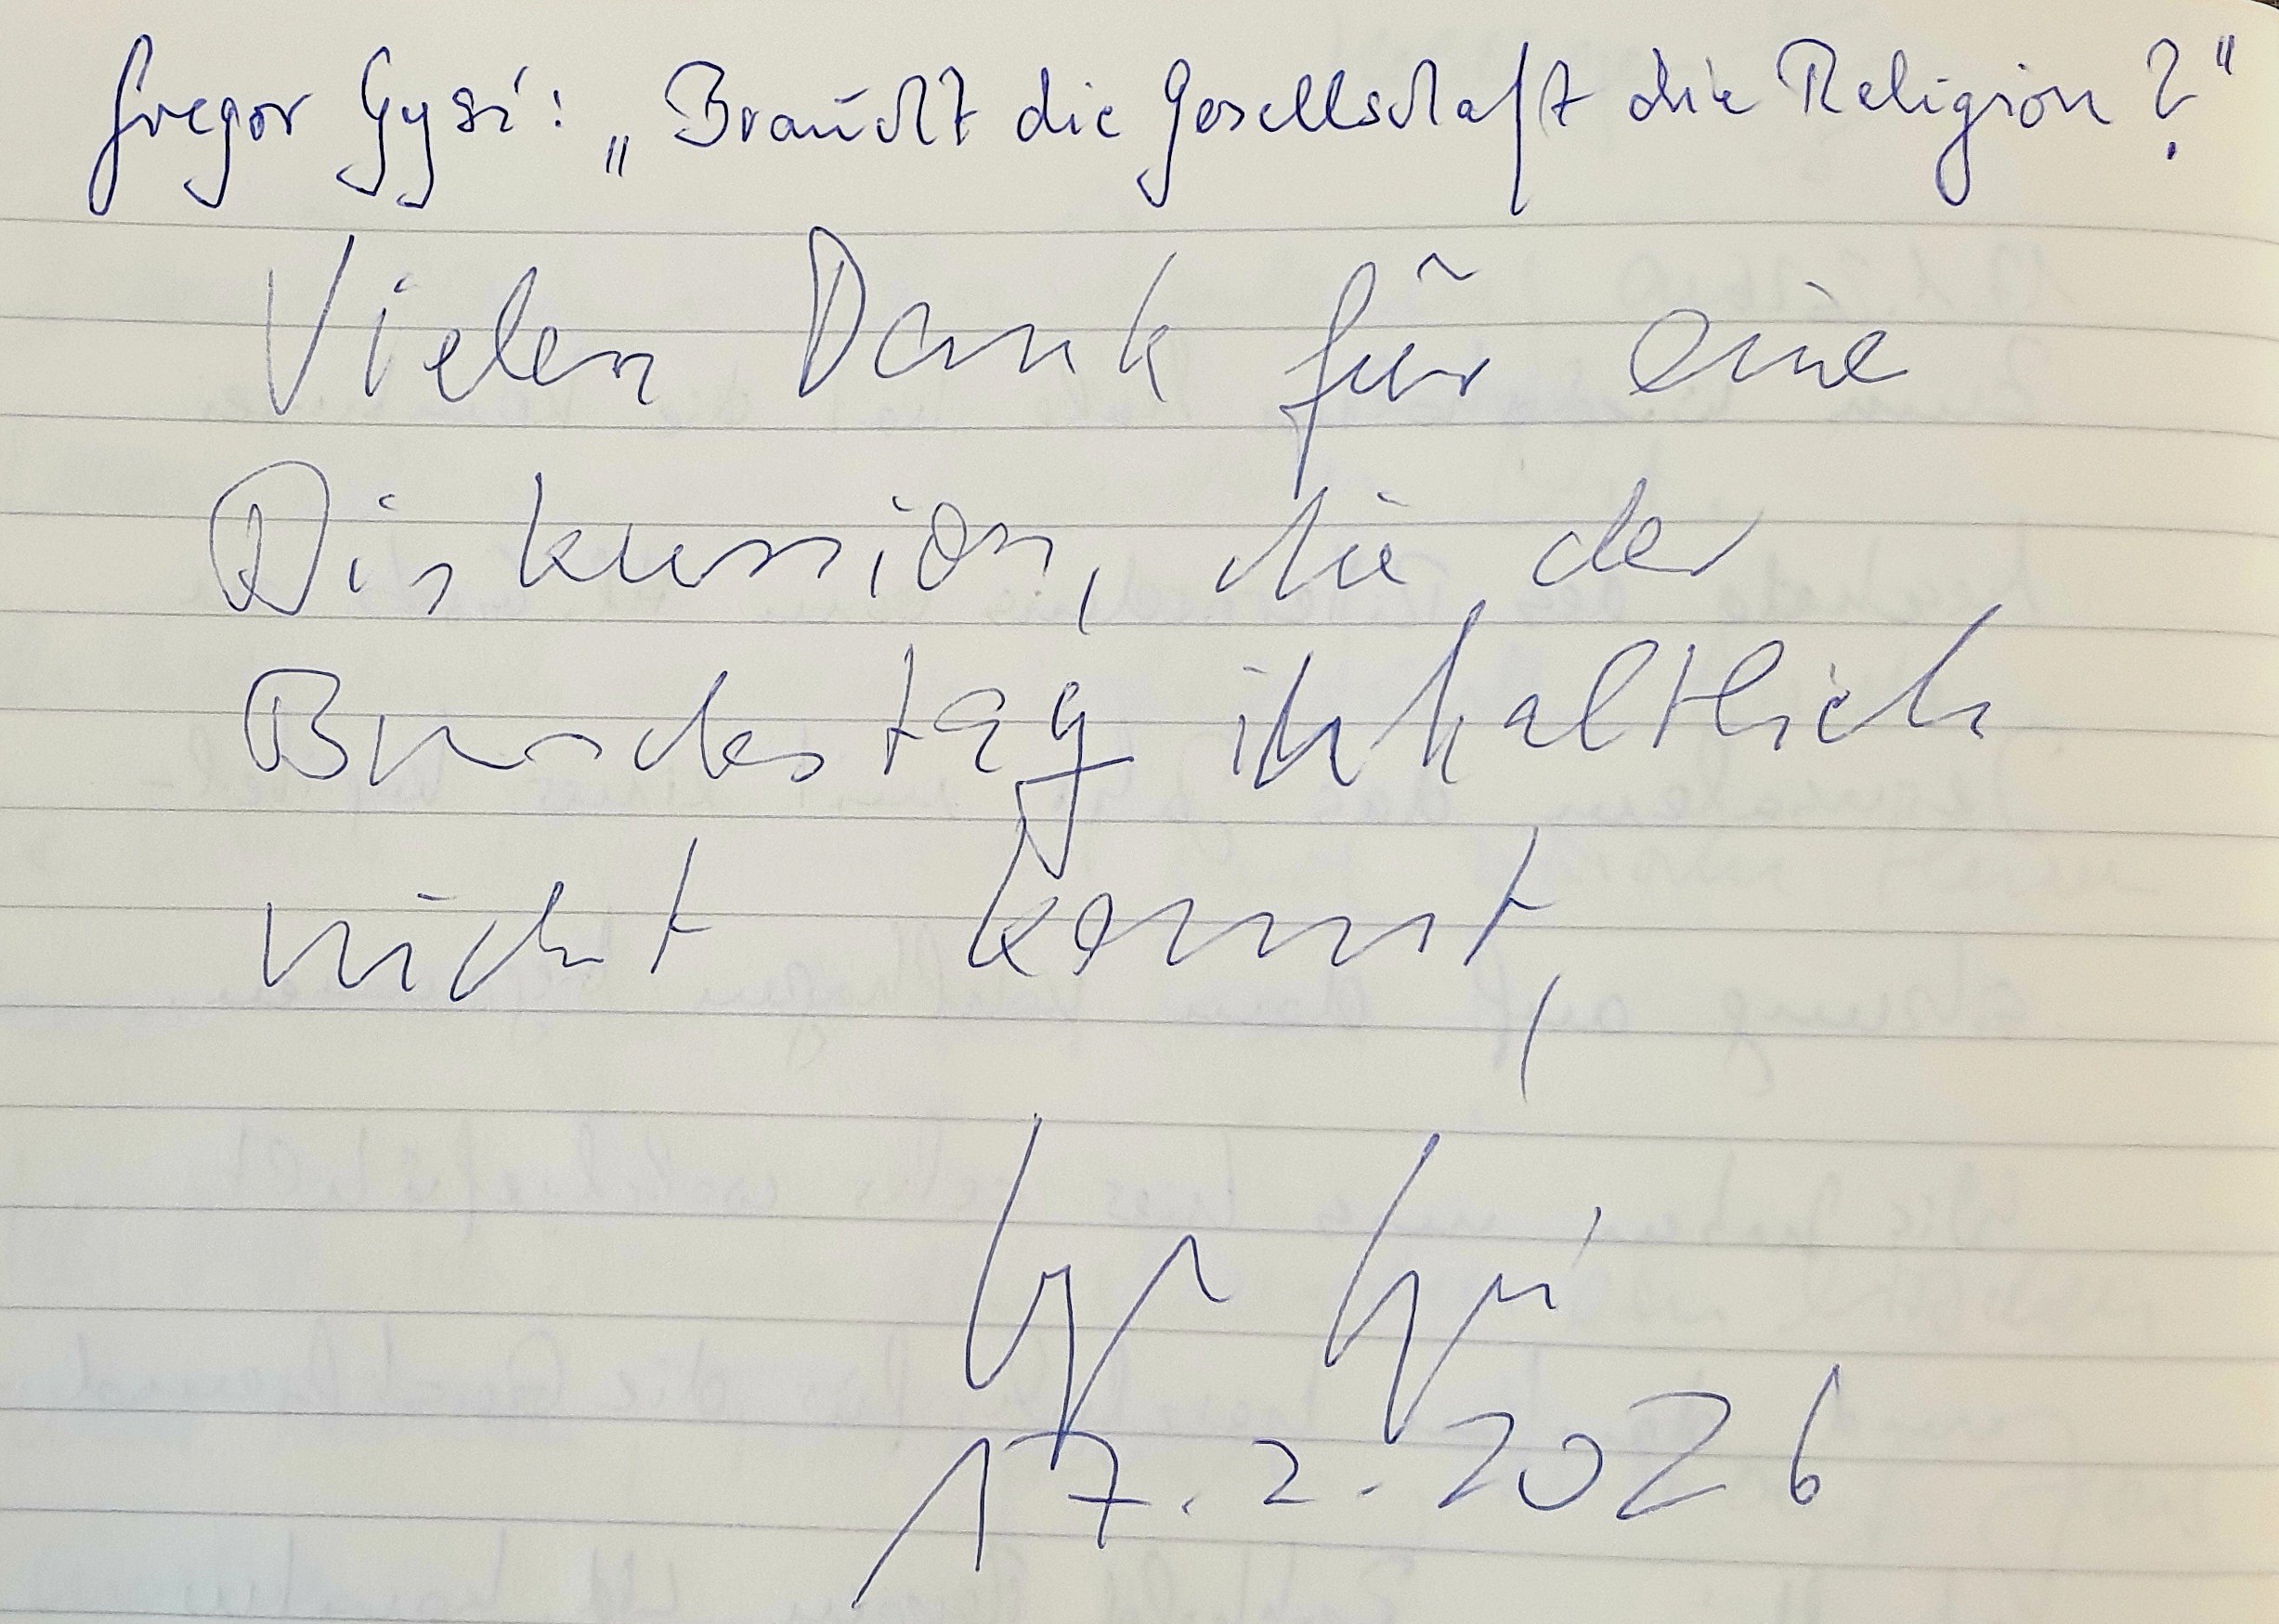 Gregor Gysi: „Braucht die Gesellschaft die Religion?"
Vielen Dank für eine
Diskussion, die der
Bundestag inhaltlich
nicht kennt,
17.2.2026